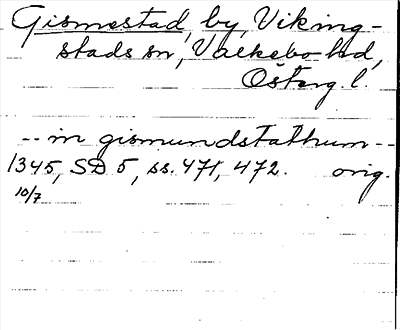 Gismestad, by, Viking-
stads sn, Valkebo hd,
Österg. l.
-- in gismundstathum --
1345, SD 5, ss. 471, 472. orig.
10/7